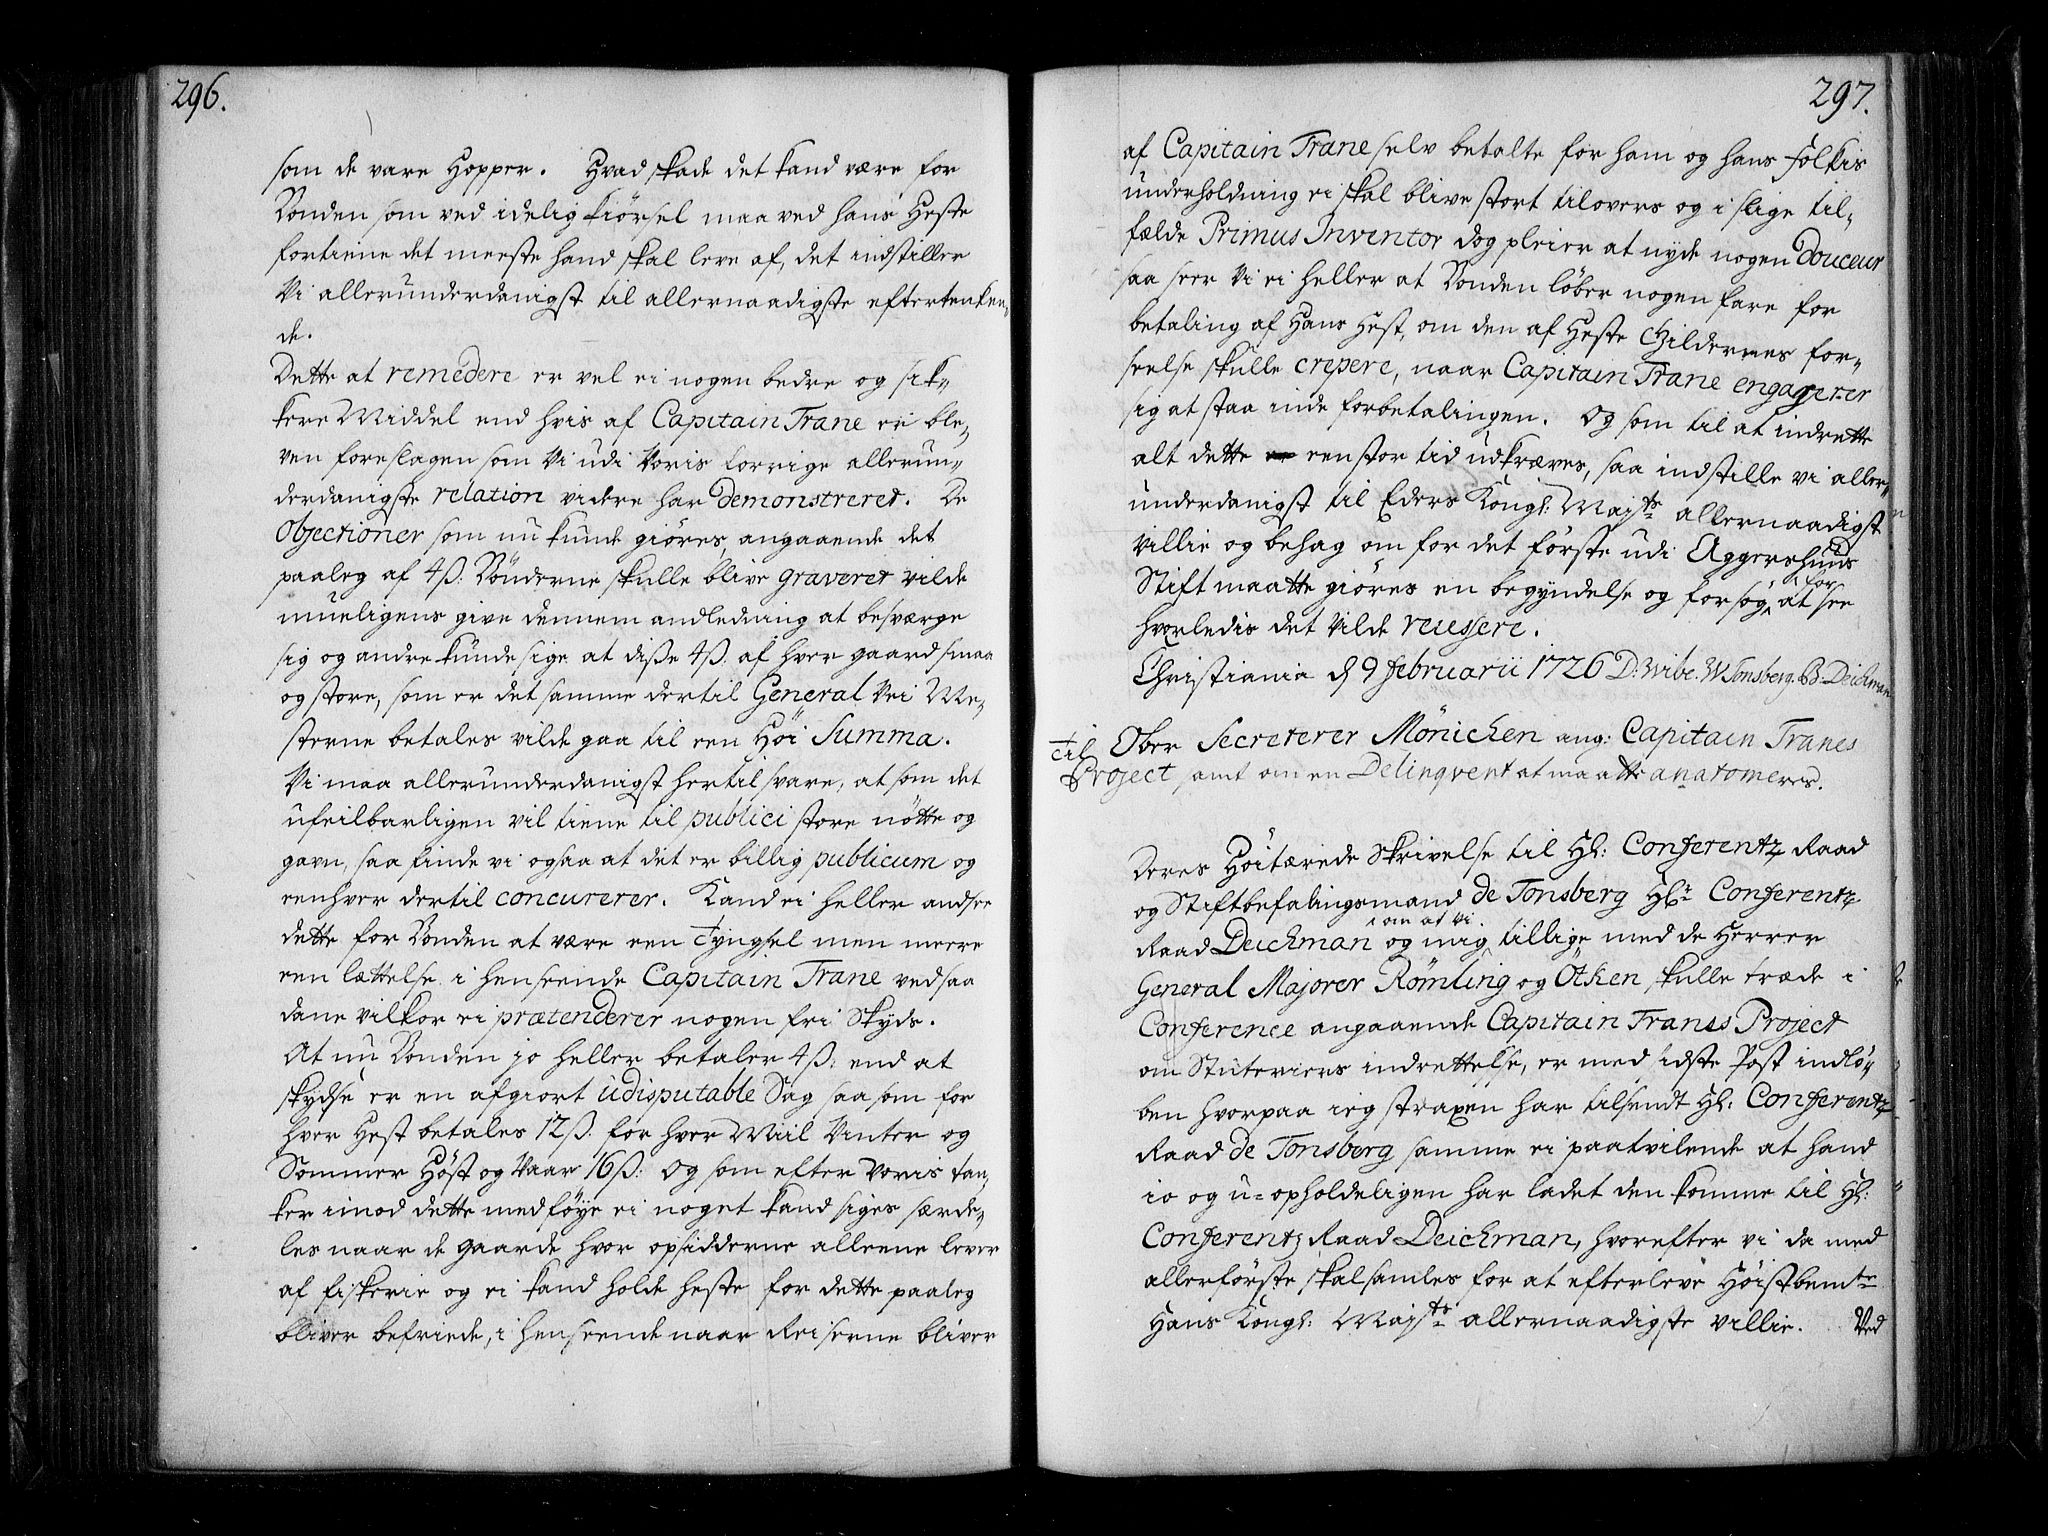 296.
som de vare Hopper. Hvad skade det kand være for
Bonden som ved idelig kiörsel maa ved hans Heste
fortiene det meeste hand skal leve af, det indstiller
Vi allerunderdanigst til allernaadigste eftertenken,,
de.
Dette at remedere er vel ei nogen bedre og sik,,
kere Middel end hvis af Capitain Trane er ble,,
ven foreslagen som Vi udi Voris forrige allerun,,
derdanigste relation videre har demonstreret. De
Objectioner som nu kunde giöres, angaaende det
paaleg af 4 ß: Bönderne skulle blive graveret vilde
mueligens give dennem andledning at besværge
sig og andre kunde sige at disse 4 ß. af hver gaard smaa
og store, som er det samme dertil General Vei Me,,
sterne betales vilde gaa til een Höi Summa.
Vi maa allerunderdanigst hertil svare, at som det
ufeilbarligen vil tiene til publici store nötte og
gavn, saa finde vi ogsaa at det er billig publicum og
eenhver dertil concurerer. Kand ei heller andsee
dette for Bonden at være een Tyngsel men meere
een lættelse i henseende Capitain Trane ved saa
dane vilkor ei prætenderer nogen fri Skyds.
At nu Bonden jo heller betaler 4 ß: end at
skydse er en afgiort udisputable Sag saa som for
hver Hest betales 12 ß. for hver Miil Vinter og
Sommer Höst og Vaar 16 ß: og som efter Voris tan,,
ker imod dette med föye ei noget kand siges særde,,
les naar de gaarde hvor opsidderne alleene lever
af fiskerie og ei kand holde heste for dette paaleg
bliver befriede, i henseende naar Reiserne bliver
297.
af Capitain Trane selv betalte for ham og hans folkis
underholdning ei skal blive stort tilovers og i slige til,,
fælde Primus Inventor dog pleier at nyde nogen Douceur
saa seer Vi ei heller at Bonden löber nogen fare for
betaling af Hans Hest, om den af Heste Gildernes for,,
seelse skulle crepere, naar Capitain Trane engagerer
sig at staa inde for betalingen. Og som til at indrette
alt dette een stor tid udkræves, saa indstille vi aller,,
underdanigst til Eders Kongl: Mayts allernaadigst
Villie og behag om for det förste udi Aggershuus
Stift maatte giöres en begyndelse og forsög for at see
hvorledis det vilde reussere.
Christiania d 9 februarii 1726 D: Wibe. W Tonsberg. B: Deichman
Til Ober Secreterer Mönichen ang: Capitain Tranes
Project samt om en Delinqvent at maatte anatomeres.
Deres Höitærede Skrivelse til Hl: Conferentz Raad
og Stiftbefalingsmand de Tonsberg Hl: Conferentz
Raad Deichman og mig om at vi tillige med de Herrer
General Majorer Römling og Ötken skulle træde i
Conference angaaende Capitain Tranes Project
om Stuteriers indrettelse, er med sidste Post indlö,,
ben hvorpaa ieg straxen har tilsendt Hl: Conferentz
Raad de Tonsberg samme ei paatvilende at hand
io og u=opholdeligen har ladet den komme til Hl:
Conferentz Raad Deichman, hvorefter vi da med
allerförste skal samles for at efterleve Höistbemte
Hans Kongl: Mayts allernaadigste villie. Ved